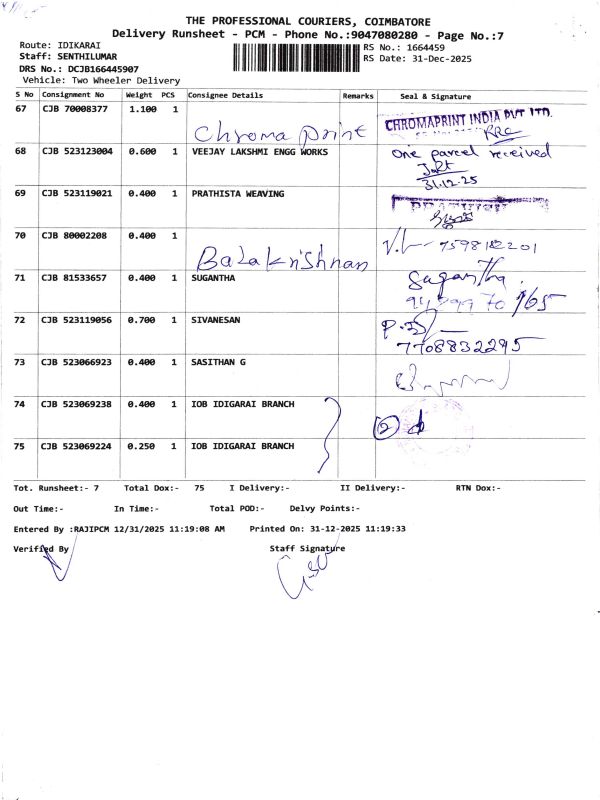 THE PROFESSIONAL COURIERS, COIMBATORE
Delivery Runsheet - PCM - Phone No.:9047080280 - Page No.:7
Route: IDIKARAI
RS No.: 1664459
Staff: SENTHILUMAR
RS Date: 31-Dec-2025
DRS No.: DCJB166445907
Vehicle: Two Wheeler Delivery
S No Consignment No Weight PCS Consignee Details Remarks Seal & Signature
67 CJB 70008377 1.100 1 Chroma print CHROMAPRINT INDIA PVT LTD.
68 CJB 523123004 0.600 1 VEEJAY LAKSHMI ENGG WORKS One parcel received
31.12.25
69 CJB 523119021 0.400 1 PRATHISTA WEAVING
70 CJB 80002208 0.400 1 Balakrishnan 7598182201
71 CJB 81533657 0.400 1 SUGANTHA Sugantha
72 CJB 523119056 0.700 1 SIVANESAN
7708832295
73 CJB 523066923 0.400 1 SASITHAN G
74 CJB 523069238 0.400 1 IOB IDIGARAI BRANCH 2
75 CJB 523069224 0.250 1 IOB IDIGARAI BRANCH
Tot. Runsheet:- 7 Total Dox:- 75 I Delivery:- II Delivery:- RTN Dox:-
Out Time:- In Time:- Total POD:- Delvy Points:-
Entered By :RAJIPCM 12/31/2025 11:19:08 AM Printed On: 31-12-2025 11:19:33
Verified By Staff Signature